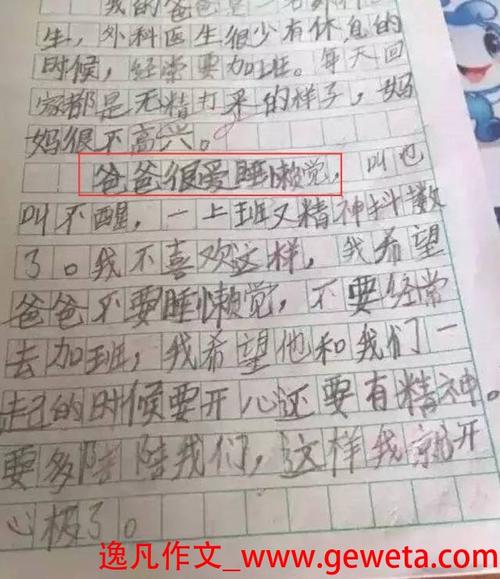 我的爸爸是一名外科医
生，外科医生很少有休息的
时候，经常要加班。每天回
家都是无精打采的样子，妈
妈很不高兴。
爸爸很爱睡懒觉，叫也
叫不醒，一上班又精神抖擞
了。我不喜欢这样，我希望
爸爸不要睡懒觉，不要经常
去加班，我希望他和我们一
起的时候要开心还要有精神。
要多陪陪我们，这样我就开
心极了。
逸凡作文_www.geweta.com